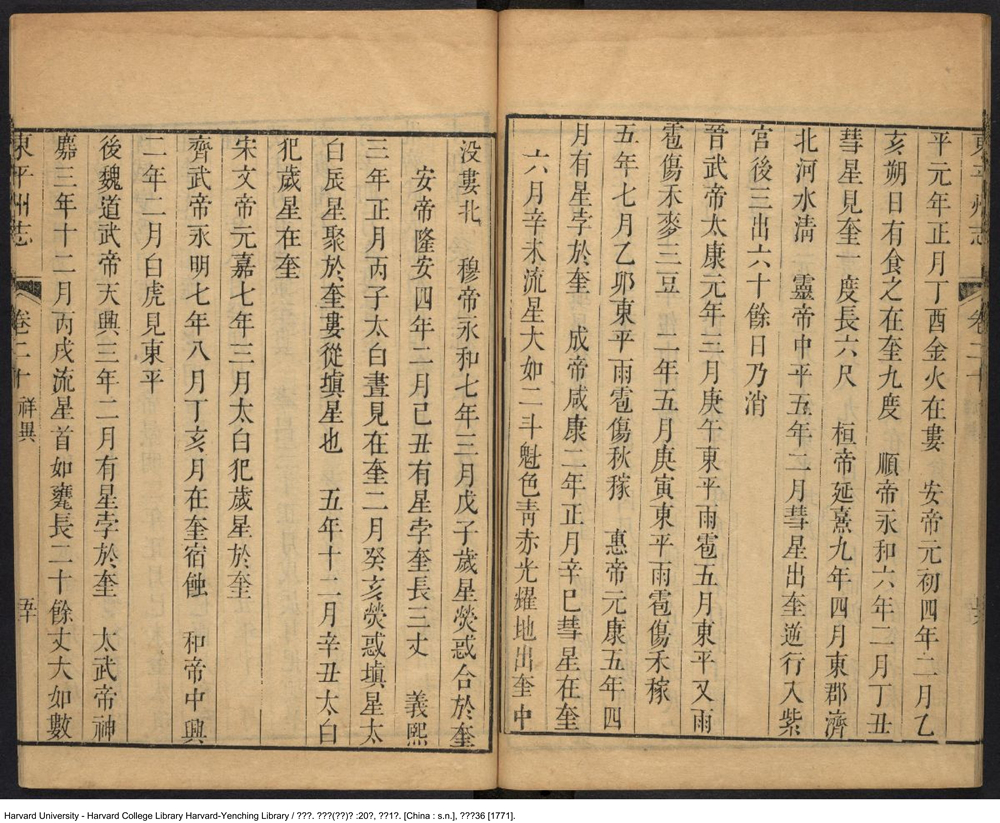 東平州志
卷二十
平元年正月丁酉金火在婁　安帝元初四年二月乙
亥朔日有食之在奎九度　順帝永和六年二月丁丑
彗星見奎一度長六尺　桓帝延熹九年四月東郡濟
北河水清　靈帝中平五年二月彗星出奎逆行入紫
宮後三出六十餘日乃消
晉武帝太康元年三月庚午東平雨雹五月東平又雨
雹傷禾麥三豆　二年五月庚寅東平雨雹傷禾稼
五年七月乙卯東平雨雹傷秋稼　惠帝元康五年四
月有星孛於奎　成帝咸康二年正月辛巳彗星在奎
六月辛未流星大如二斗魁色靑赤光耀地出奎中
没婁北　穆帝永和七年三月戊子歲星熒惑合於奎
安帝隆安四年二月己丑有星孛奎長三丈　義熙
三年正月丙子太白晝見在奎二月癸亥熒惑塡星太
白辰星聚於奎婁從塡星也　五年十二月辛丑太白
犯歲星在奎
宋文帝元嘉七年三月太白犯歲星於奎
齊武帝永明七年八月丁亥月在奎宿蝕　和帝中興
二年二月白虎見東平
後魏道武帝天興三年二月有星孛於奎　太武帝神
䴥三年十二月丙戌流星首如甕長二十餘丈大如數
東平州志
卷二十　祥異
Harvard University - Harvard College Library Harvard-Yenching Library / ???. ???(??)? :20?, ??1?. [China : s.n.], ???36 [1771].